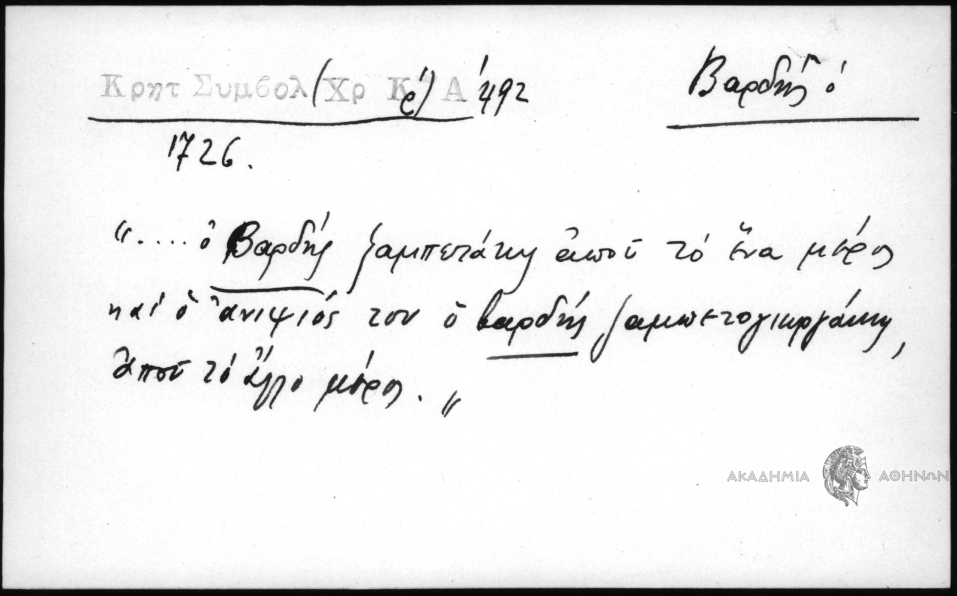 Κρητ Συμβολ (Χρ Κρ') Α' 492
Βαρδῆς ὁ
1726.
"....ὁ Βαρδῆς ζαμπετάκη ἀποῦ τὸ ἕνα μέρος
καὶ ὁ ἀνιψιός του ὁ βαρδής ζαμπετογιωργάκη,
ἀποῦ τὸ ἄλλο μέρος."
ΑΚΑΔΗΜΙΑ ΑΘΗΝΩΝ